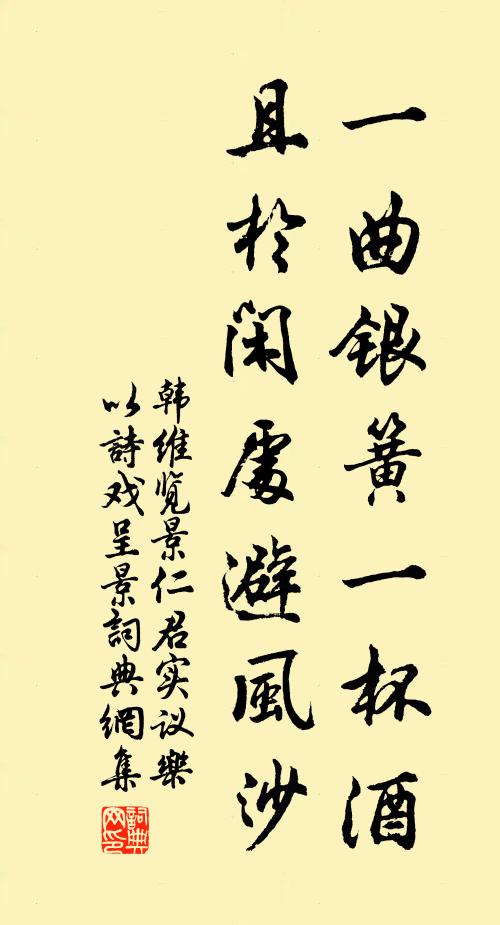 一曲银簧一杯酒
且於闲處避風沙
韩维览景仁君实议樂
以詩戏呈景詞典網集
詞典網印